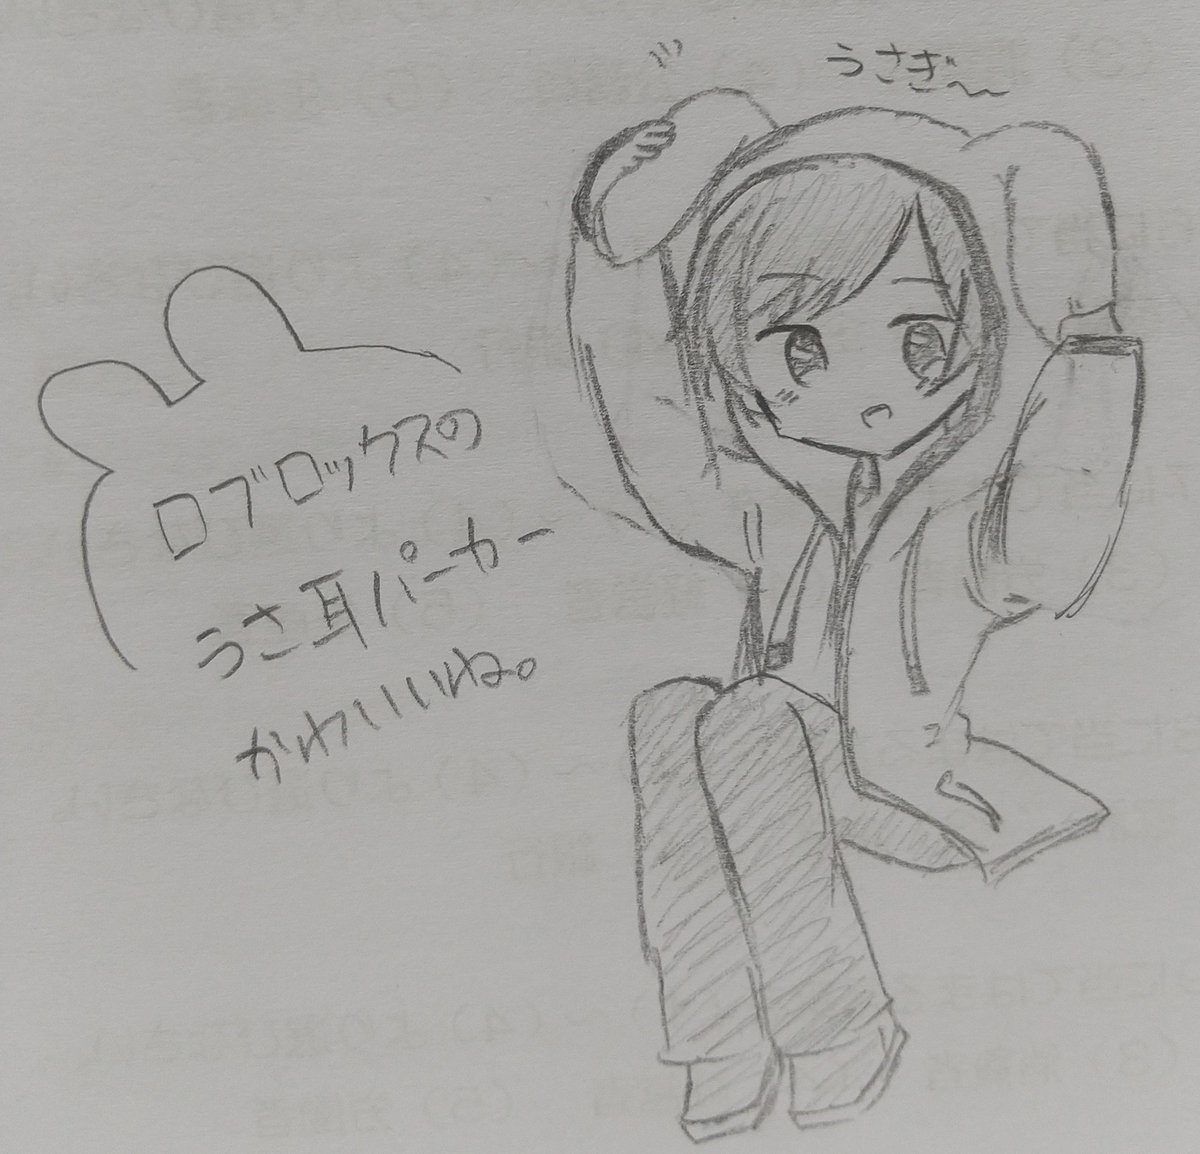 うさぎ〜
ロブロックスの
うさ耳パーカー
かわいいね。